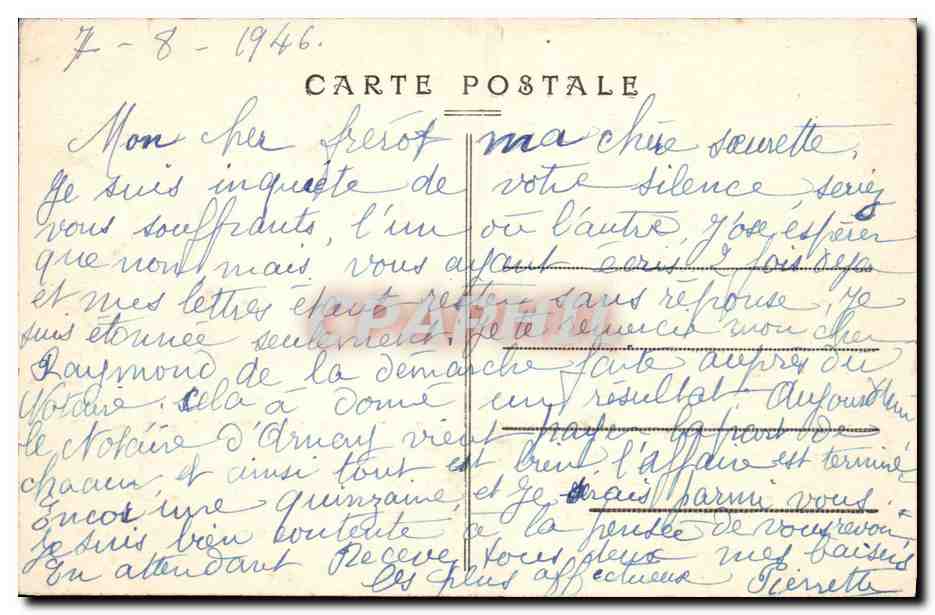 7 - 8 - 1946.
CARTE POSTALE
Mon cher frérot ma chère soeurette,
Je suis inquiète de votre silence, seriez
vous souffrants, l'un où l'autre, J'ose, espérer
que non, mais, vous ayant écris 2 fois déja
et mes lettres étant restée sans réponse, Je
suis étonnée seulement. Je te remercie mon cher
Raymond de la démarche faite auprès du
Notaire. cela a donné un résultat. Aujourd'hui
le Notaire d'Arnay vient payé la part de
chacun et ainsi tout est bien, l'affaire est terminé
encor une quinzaine, et Je serais parmi vous.
je suis bien contente a la pensée de vous revoir
En attendant Receve tous deux mes baisers
les plus affectueux Pierrette
CPARAMA